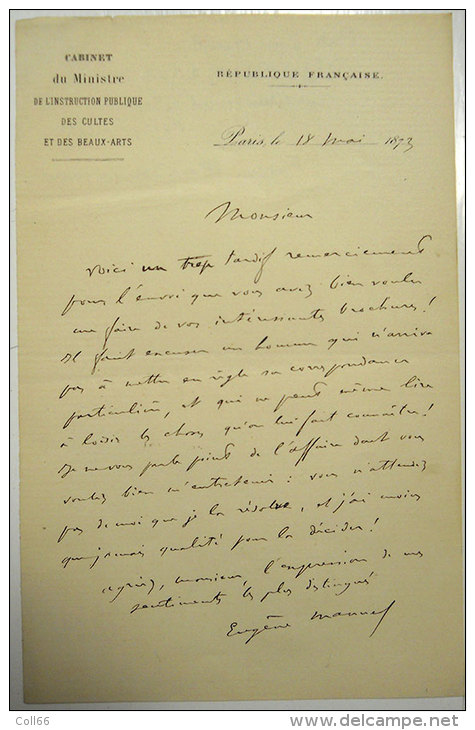 CABINET
du Ministre
DE L'INSTRUCTION PUBLIQUE
DES CULTES
ET DES BEAUX-ARTS
RÉPUBLIQUE FRANÇAISE.
Paris, le 18 mai 1873
Monsieur
Voici un trop tardif remerciement
pour l'envoi que vous avez bien voulu
me faire de vos intéressantes brochures !
Il faut excuser un homme qui n'arrive
pas à mettre en règle sa correspondance
particulière, et qui ne peut même lire
à loisir les choses qu'on lui fait connaître !
Je ne vous parle point de l'affaire dont vous
voulez bien m'entretenir : vous n'attendez
pas de moi que je la résolve, et j'ai moins
que jamais qualité pour la décider !
Agréez, monsieur, l'expression de mes
sentiments les plus distingués
Eugène Manuel
Coll66
www.delcampe.net